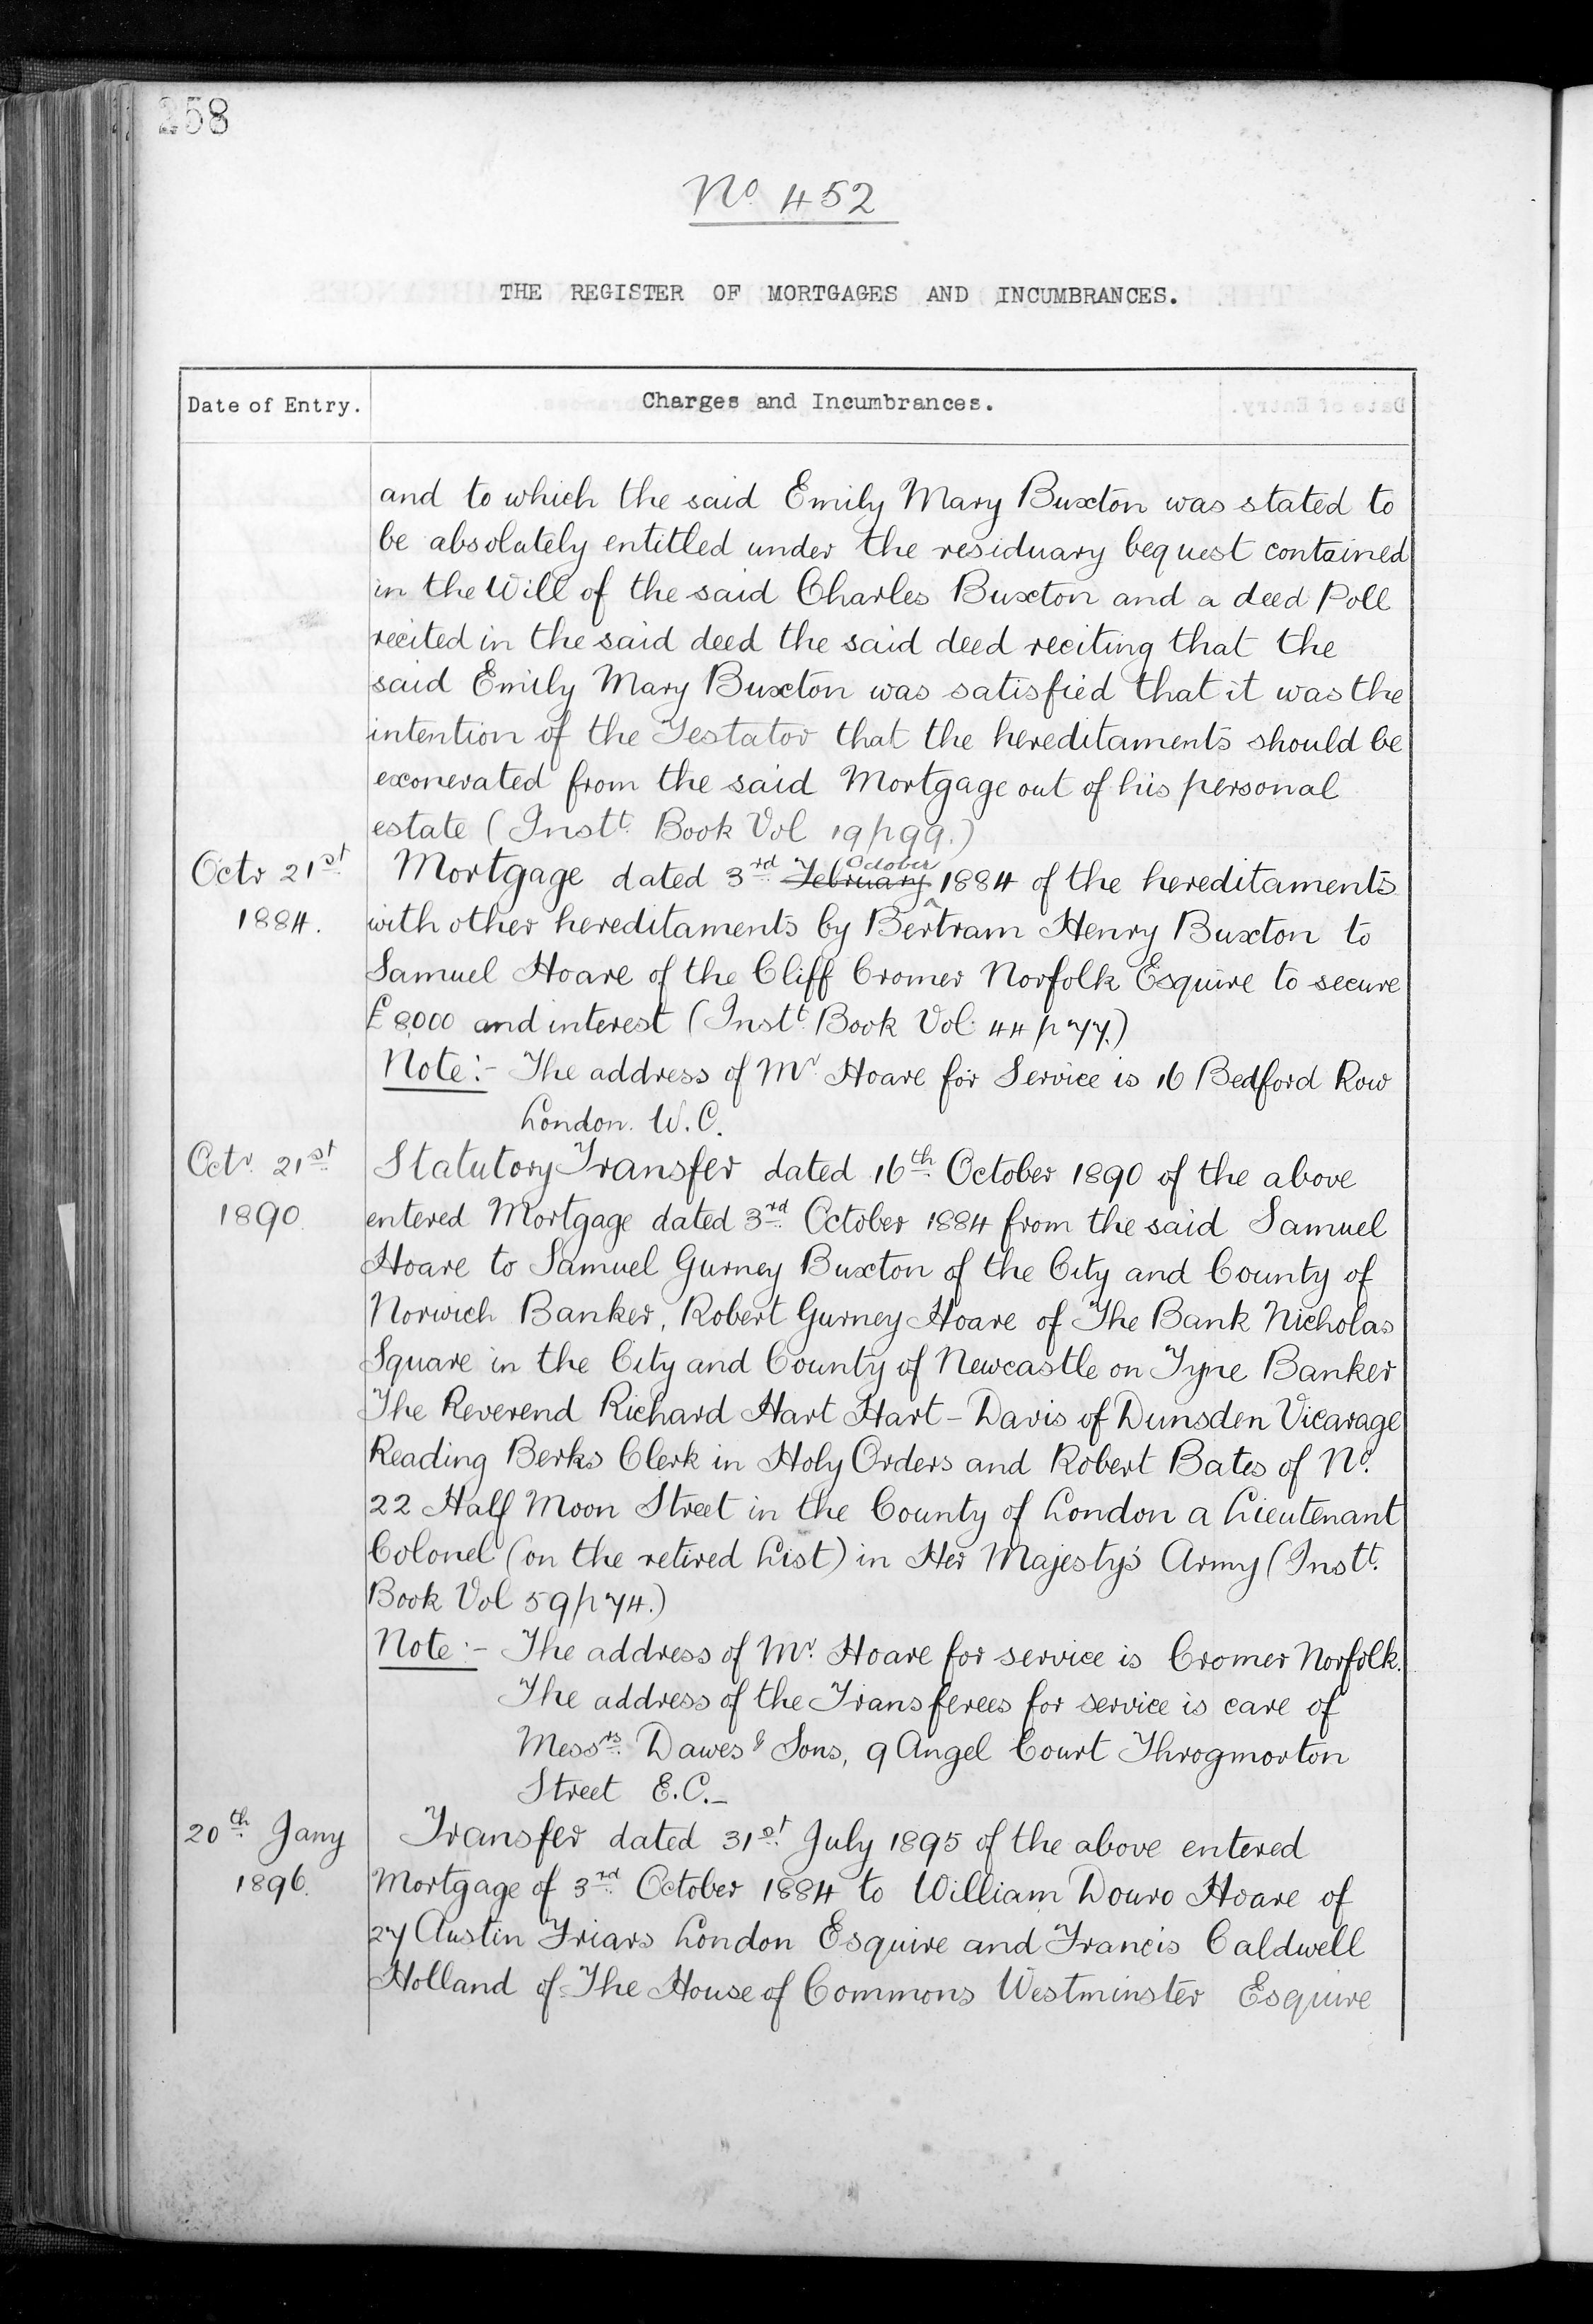 258
No. 452
THE REGISTER OF MORTGAGES AND INCUMBRANCES.
Date of Entry.
Charges and Incumbrances.
and to which the said Emily Mary Buxton was stated to
be absolutely entitled under the residuary bequest contained
in the Will of the said Charles Buxton and a deed Poll
recited in the said deed the said deed reciting that the
said Emily Mary Buxton was satisfied that it was the
intention of the Testator that the hereditaments should be
exonerated from the said Mortgage out of his personal
estate (Instt. Book Vol 19 p 99.)
Octr 21st
1884.
October
Mortgage dated 3rd February 1884 of the hereditaments
with other hereditaments by Bertram Henry Buxton to
Samuel Hoare of the Cliff Cromer Norfolk Esquire to secure
£8000 and interest (Instt. Book Vol. 44 p 77.)
Note:- The address of Mr. Hoare for Service is 16 Bedford Row
London. W.C.
Octr. 21st
1890.
Statutory Transfer dated 16th October 1890 of the above
entered Mortgage dated 3rd October 1884 from the said Samuel
Hoare to Samuel Gurney Buxton of the City and County of
Norwich Banker, Robert Gurney Hoare of The Bank Nicholas
Square in the City and County of Newcastle on Tyne Banker
The Reverend Richard Hart Hart-Davis of Dunsden Vicarage
Reading Berks Clerk in Holy Orders and Robert Bates of No.
22 Half Moon Street in the County of London a Lieutenant
Colonel (on the retired List) in Her Majesty's Army (Instt.
Book Vol 59 p 74.)
Note:- The address of Mr. Hoare for service is Cromer Norfolk.
The address of the Transferees for service is care of
Messrs. Dawes & Sons, 9 Angel Court Throgmorton
Street E.C.-
20th Jany
1896.
Transfer dated 31st July 1895 of the above entered
Mortgage of 3rd October 1884 to William Douro Hoare of
27 Austin Friars London Esquire and Francis Caldwell
Holland of The House of Commons Westminster Esquire